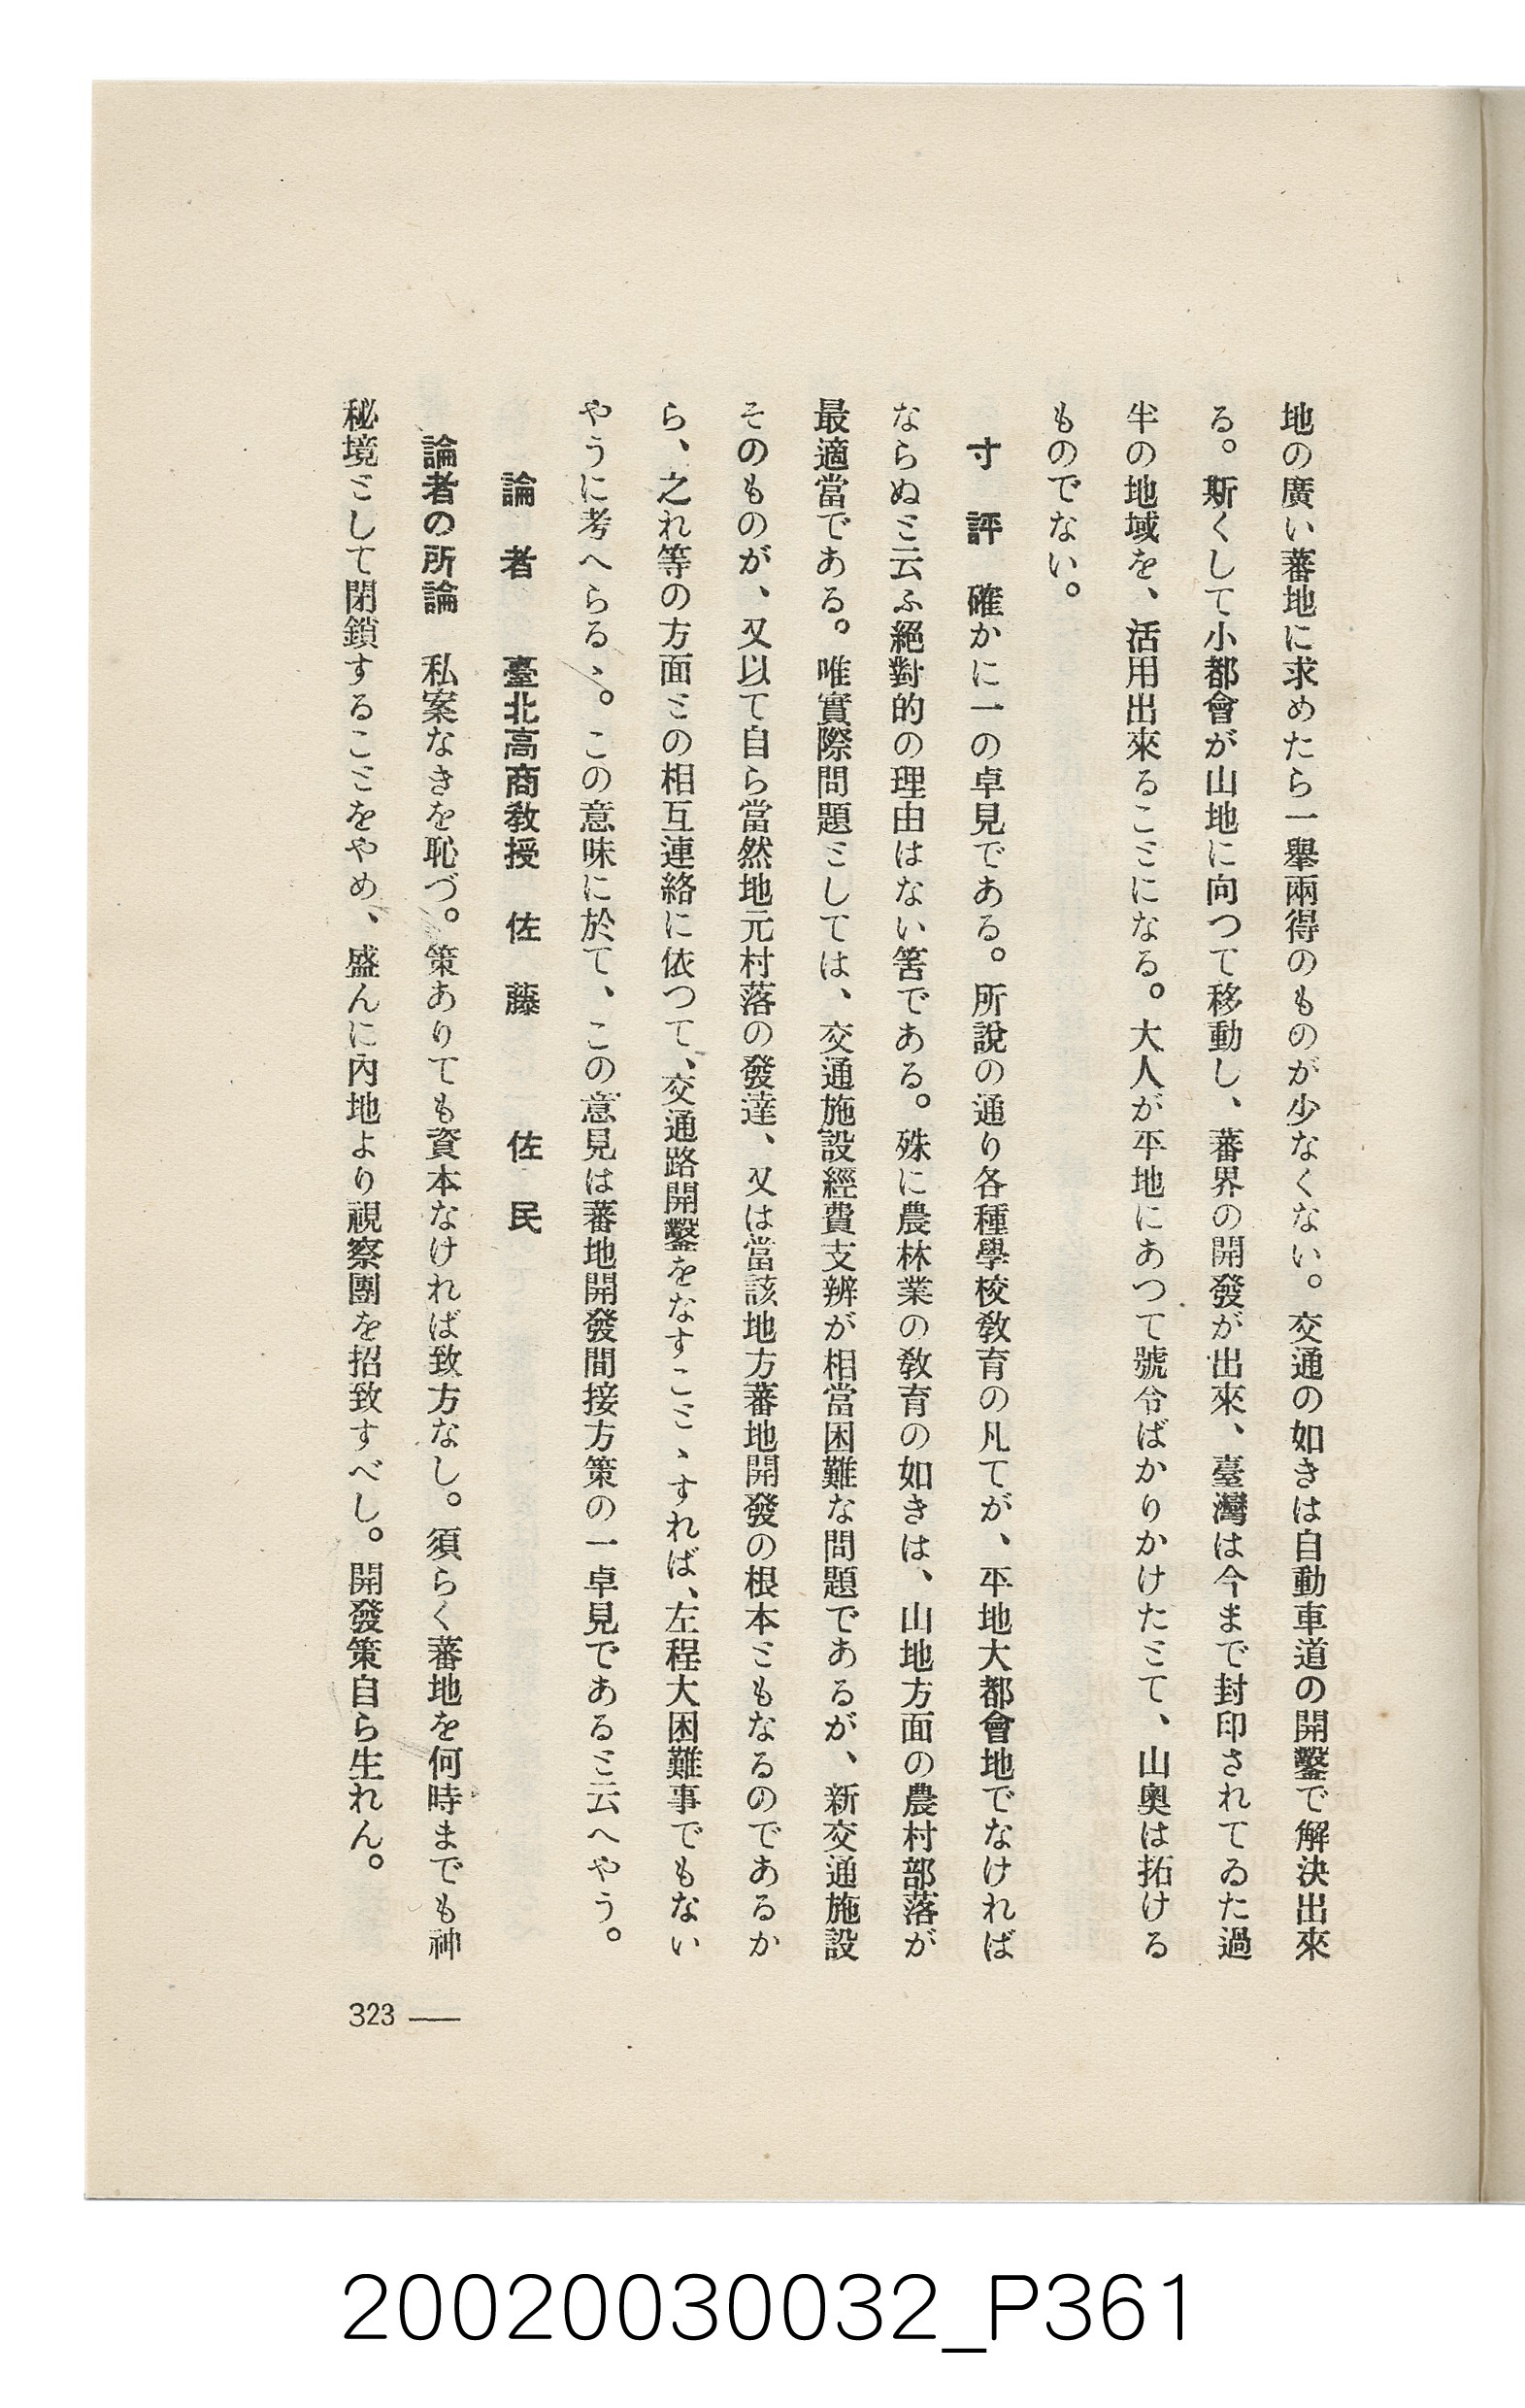 地の廣い蕃地に求めたら一擧兩得のものが少なくない。交通の如きは自動車道の開鑿で解決出來
る。斯くして小都會が山地に向つて移動し、蕃界の開發が出來、臺灣は今まで封印されてゐた過
半の地域を、活用出來ることになる。大人が平地にあつて號令ばかりかけたとて、山奥は拓ける
ものでない。
寸評　確かに一の卓見である。所說の通り各種學校敎育の凡てが、平地大都會地でなければ
ならぬと云ふ絕對的の理由はない筈である。殊に農林業の敎育の如きは、山地方面の農村部落が
最適當である。唯實際問題としては、交通施設經費支辨が相當困難な問題であるが、新交通施設
そのものが、又以て自ら當然地元村落の發達、又は當該地方蕃地開發の根本ともなるのであるか
ら、之れ等の方面との相互連絡に依つて、交通路開鑿をなすことゝすれば、左程大困難事でもない
やうに考へらるゝ。この意味に於て、この意見は蕃地開發間接方策の一卓見であると云へやう。
論者　臺北高商敎授　佐藤　佐民
論者の所論　私案なきを恥づ。策ありても資本なければ致方なし。須らく蕃地を何時までも神
秘境として閉鎖することをやめ、盛んに內地より視察團を招致すべし。開發策自ら生れん。
323 ——
20020030032_P361